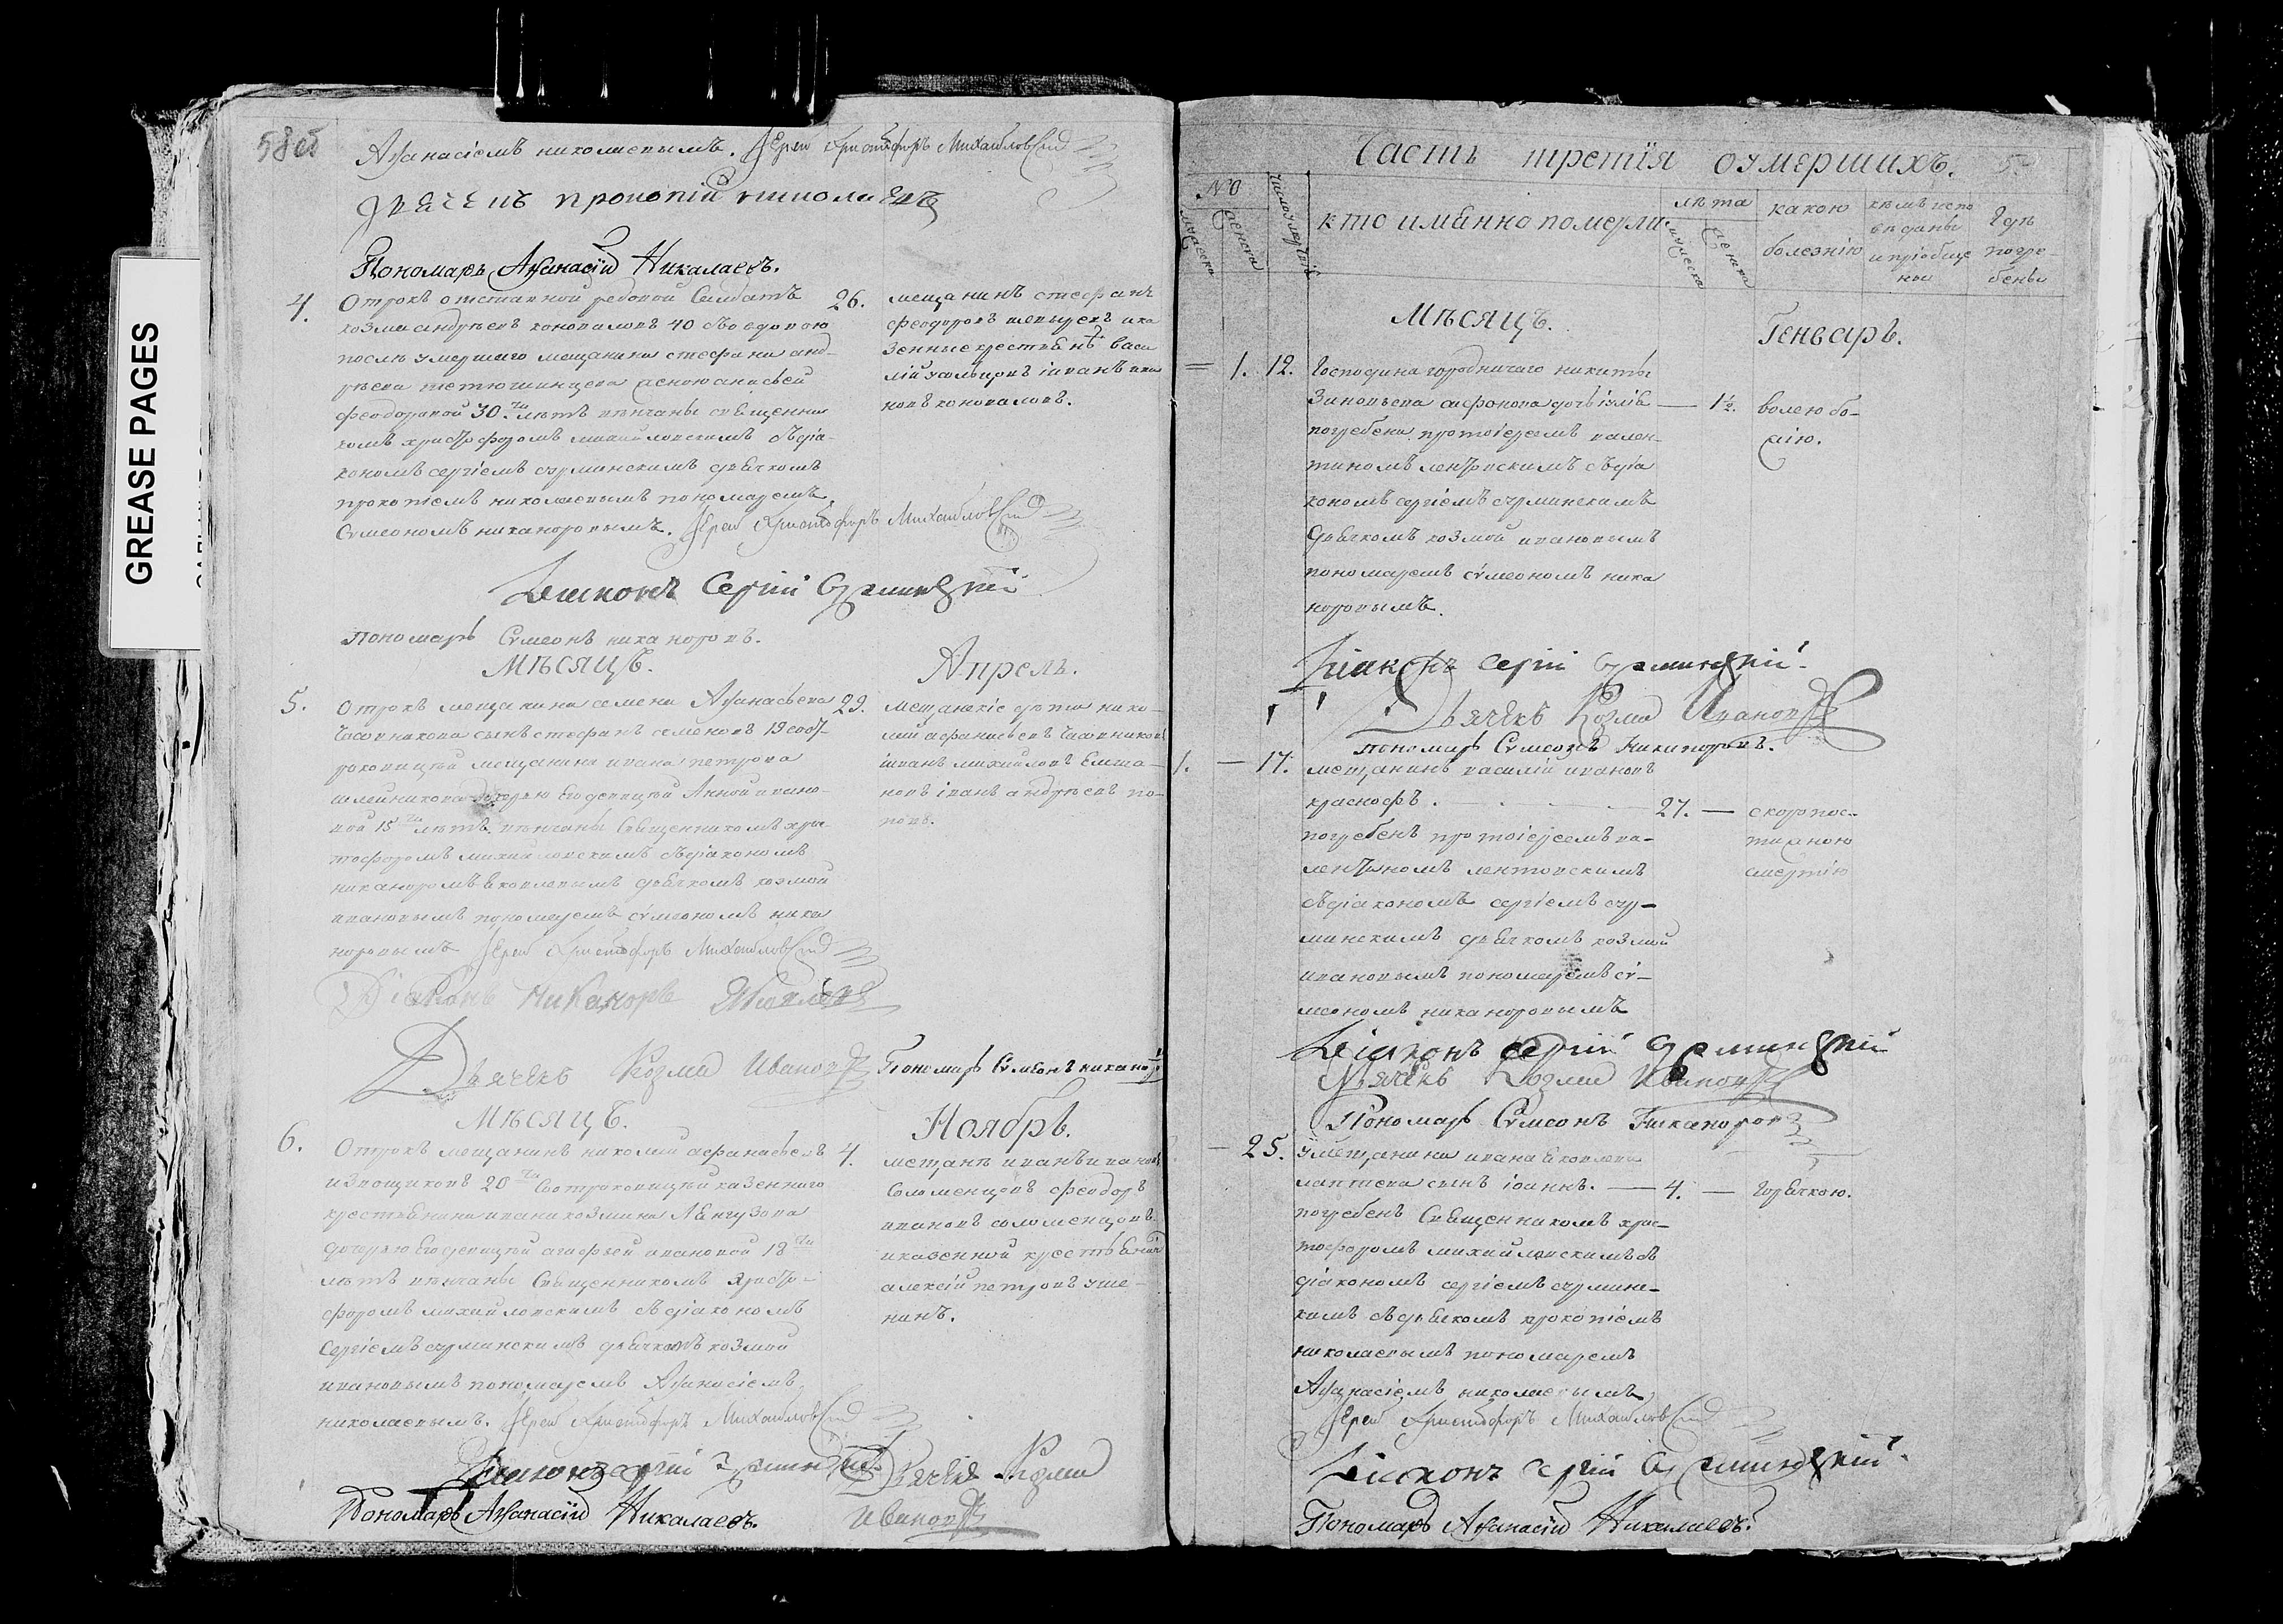 GREASE PAGES
58об
Аѳанасіемъ николаевымъ. Іерей Христофоръ Михайловскій
Дьячекъ прокопій николаевъ
Пономарь Аѳанасій Николаевъ.
4. Отрокъ отставной редовой Салдатъ 26.
козма андрѣевъ коновалов 40 съ вдовою
послѣ умершаго мещанина стефана анд-
рѣева
феодоровой 30.ти лѣтъ венчаны священни
комъ христофоромъ михайловскимъ съ діа-
кономъ сергіемъ сурминскимъ дьячкомъ
прокопіемъ николаевымъ пономаремъ
Сѵмеономъ никаноровымъ. Іерей Христофоръ Михайловскій
мещанинъ стефанъ
феодоровъ и ка
зенные крестьянѣ васи
лій иванъ ива
новъ коноваловъ.
Діаконъ Сергій Сурминскій
пономарь Сѵмеонъ никаноровъ.
Мѣсяцъ. Апрель.
5. Отрокъ мещанина семена Аѳанасьева 29.
Часовникова сынъ стефанъ семеновъ 19 со от-
роковицѣй мещанина ивана петрова
шлейникова дочерью его девицѣй Анной ивано-
вой 15ти лѣтъ венчаны Священникомъ хри-
тофоромъ михайловскимъ съ діакономъ
никаноромъ яковлевымъ дьячкомъ козмой
ивановымъ пономаремъ сѵмеономъ ника
норовымъ Іерей Христофоръ Михайловскій
мещанскіе дѣти нико-
лай афанасьевъ Часовниковъ
іванъ михайловъ Емша-
новъ іванъ андрѣевъ по-
повъ.
Діаконъ Никаноръ Яковлевъ
Дьячекъ Козма Ивановъ Пономарь Сѵмеонъ никаноровъ
Мѣсяцъ. Ноябрь.
6. Отрокъ мещанинъ николай афанасьевъ 4.
извощиковъ 20ти со отроковицѣй казенного
крестьянина ивана козмина Лянгузова
дочерью его девицѣй агафьей ивановой 18ти
лѣтъ венчаны Священникомъ Христо-
форомъ михайловскимъ съ діакономъ
Сергіемъ сурминскимъ дьячкомъ козмой
ивановымъ пономаремъ Аѳанасіемъ
николаевымъ. Іерей Христофоръ Михайловскій
мещанѣ иванъ ивановъ
Соломенцовъ феодоръ
ивановъ соломенцовъ
и казенной крестьянинъ
алексій петровъ уше-
нинъ.
Діаконъ сергій Сурминскій Дьячекъ Козма
Пономарь Аѳанасій Николаевъ. Ивановъ
Часть третія оумершихъ.
№
мужеска женска
кто имянно померли
лѣта
мужеска женска
какою болезнію
кемъ испо веданы и пріобще ны
Гдѣ погре- бены
Мѣсяцъ. Генварь.
1. 12. Господина городничаго никиты
Зиновьева сафонова дочь — 1½. волею бо-
погребена протоіереемъ вален- жію.
тиномъ лентовскимъ съ діа
кономъ сергіемъ сурминскимъ
дьячкомъ козмой ивановымъ
пономаремъ сѵмеономъ ника
норовымъ.
Діаконъ Сергій Сурминскій.
Дьячекъ Козма Ивановъ
пономарь Сѵмеонъ Никаноровъ.
1. — 17. мещанинъ василій ивановъ
27. — скоропос-
погребенъ протоіереемъ ва- тижною
лентиномъ лентовскимъ смертію
съ діакономъ сергіемъ сур-
минскимъ дьячкомъ козмой
ивановымъ пономаремъ сѵ-
меономъ никаноровымъ
Діаконъ сергій Сурминскій
Дьячекъ Козма Ивановъ
Пономарь Сѵмеонъ Никаноровъ
— 25. У мещанина ивана яковлева
лаптева сынъ іоаннъ. — 4. — Горячкою.
погребенъ Священникомъ хрис-
тофоромъ михайловскимъ съ
діакономъ сергіемъ сурминс-
кимъ съ дьячкомъ прокопіемъ
николаевымъ пономаремъ
Аѳанасіемъ николаевымъ
Іерей Христофоръ Михайловскій
Діаконъ Сергій Сурминскій.
Пономарь Аѳанасій Николаевъ.